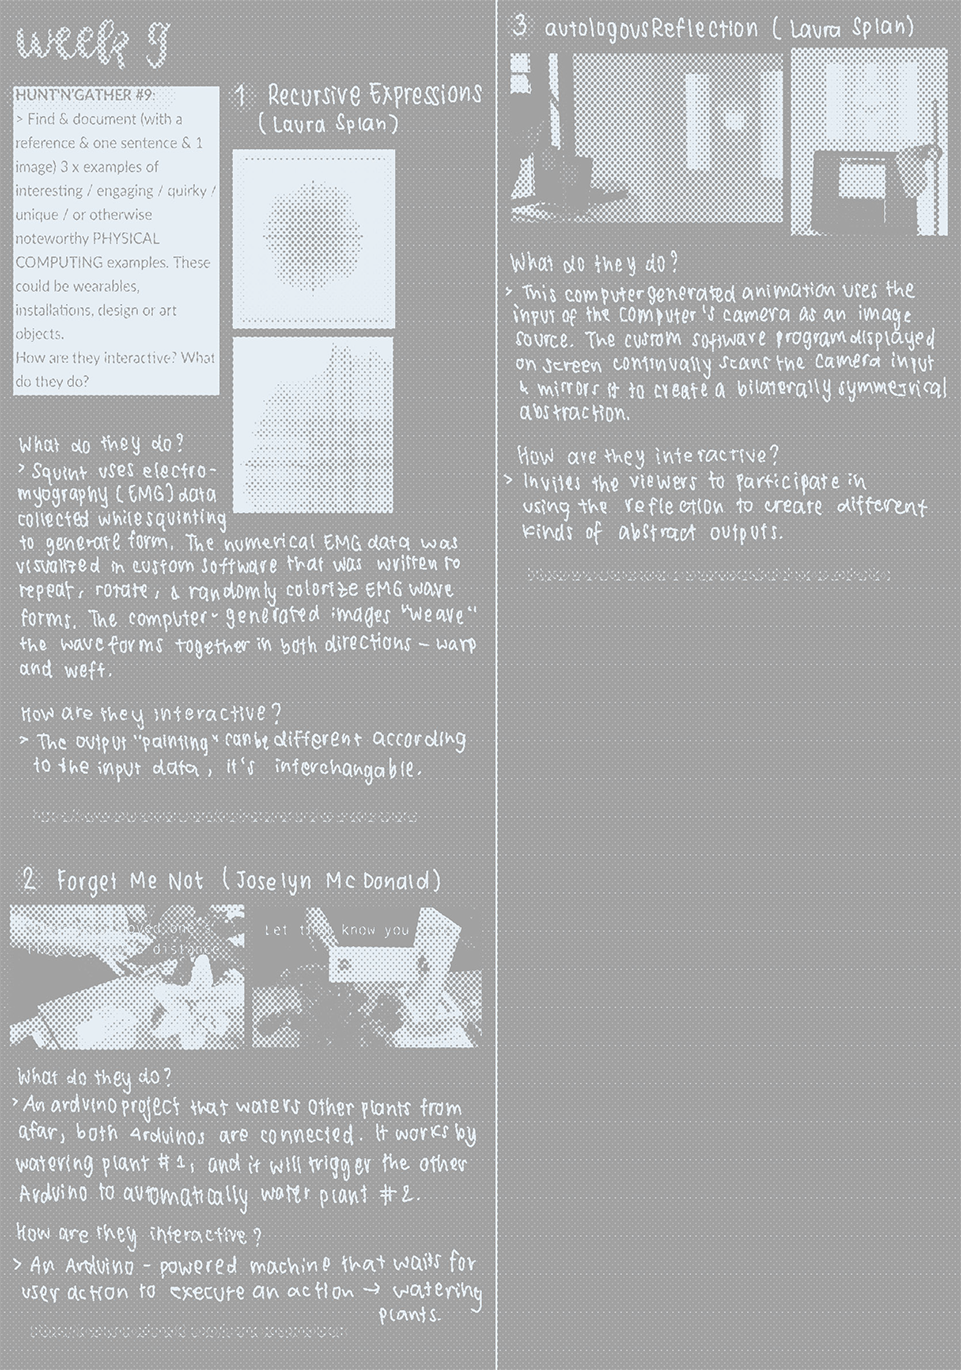 week 9
HUNT'N'GATHER #9:
> Find & document (with a
reference & one sentence & 1
image) 3 x examples of
interesting / engaging / quirky /
unique / or otherwise
noteworthy PHYSICAL
COMPUTING examples. These
could be wearables,
installations, design or art
objects.
How are they interactive? What
do they do?
1 Recursive Expressions
(Laura Splan)
What do they do?
> Squint uses electro-
myography (EMG) data
collected while squinting
to generate form. The numerical EMG data was
visualized in custom software that was written to
repeat, rotate, & randomly colorize EMG wave
forms. The computer-generated images "weave"
the waveforms together in both directions - warp
and weft.
How are they interactive?
> The output "painting" can be different according
to the input data, it's interchangable.
2 Forget Me Not (Joselyn McDonald)
distance
Let them know you
What do they do?
> An arduino project that waters other plants from
afar, both Arduinos are connected. It works by
watering plant #1, and it will trigger the other
Arduino to automatically water plant #2.
How are they interactive?
> An Arduino-powered machine that waits for
user action to execute an action → watering
plants.
3 autologousReflection (Laura Splan)
What do they do?
> This computer generated animation uses the
input of the computer's camera as an image
source. The custom software program displayed
on screen continually scans the camera input
& mirrors it to create a bilaterally symmetrical
abstraction.
How are they interactive?
> Invites the viewers to participate in
using the reflection to create different
kinds of abstract outputs.